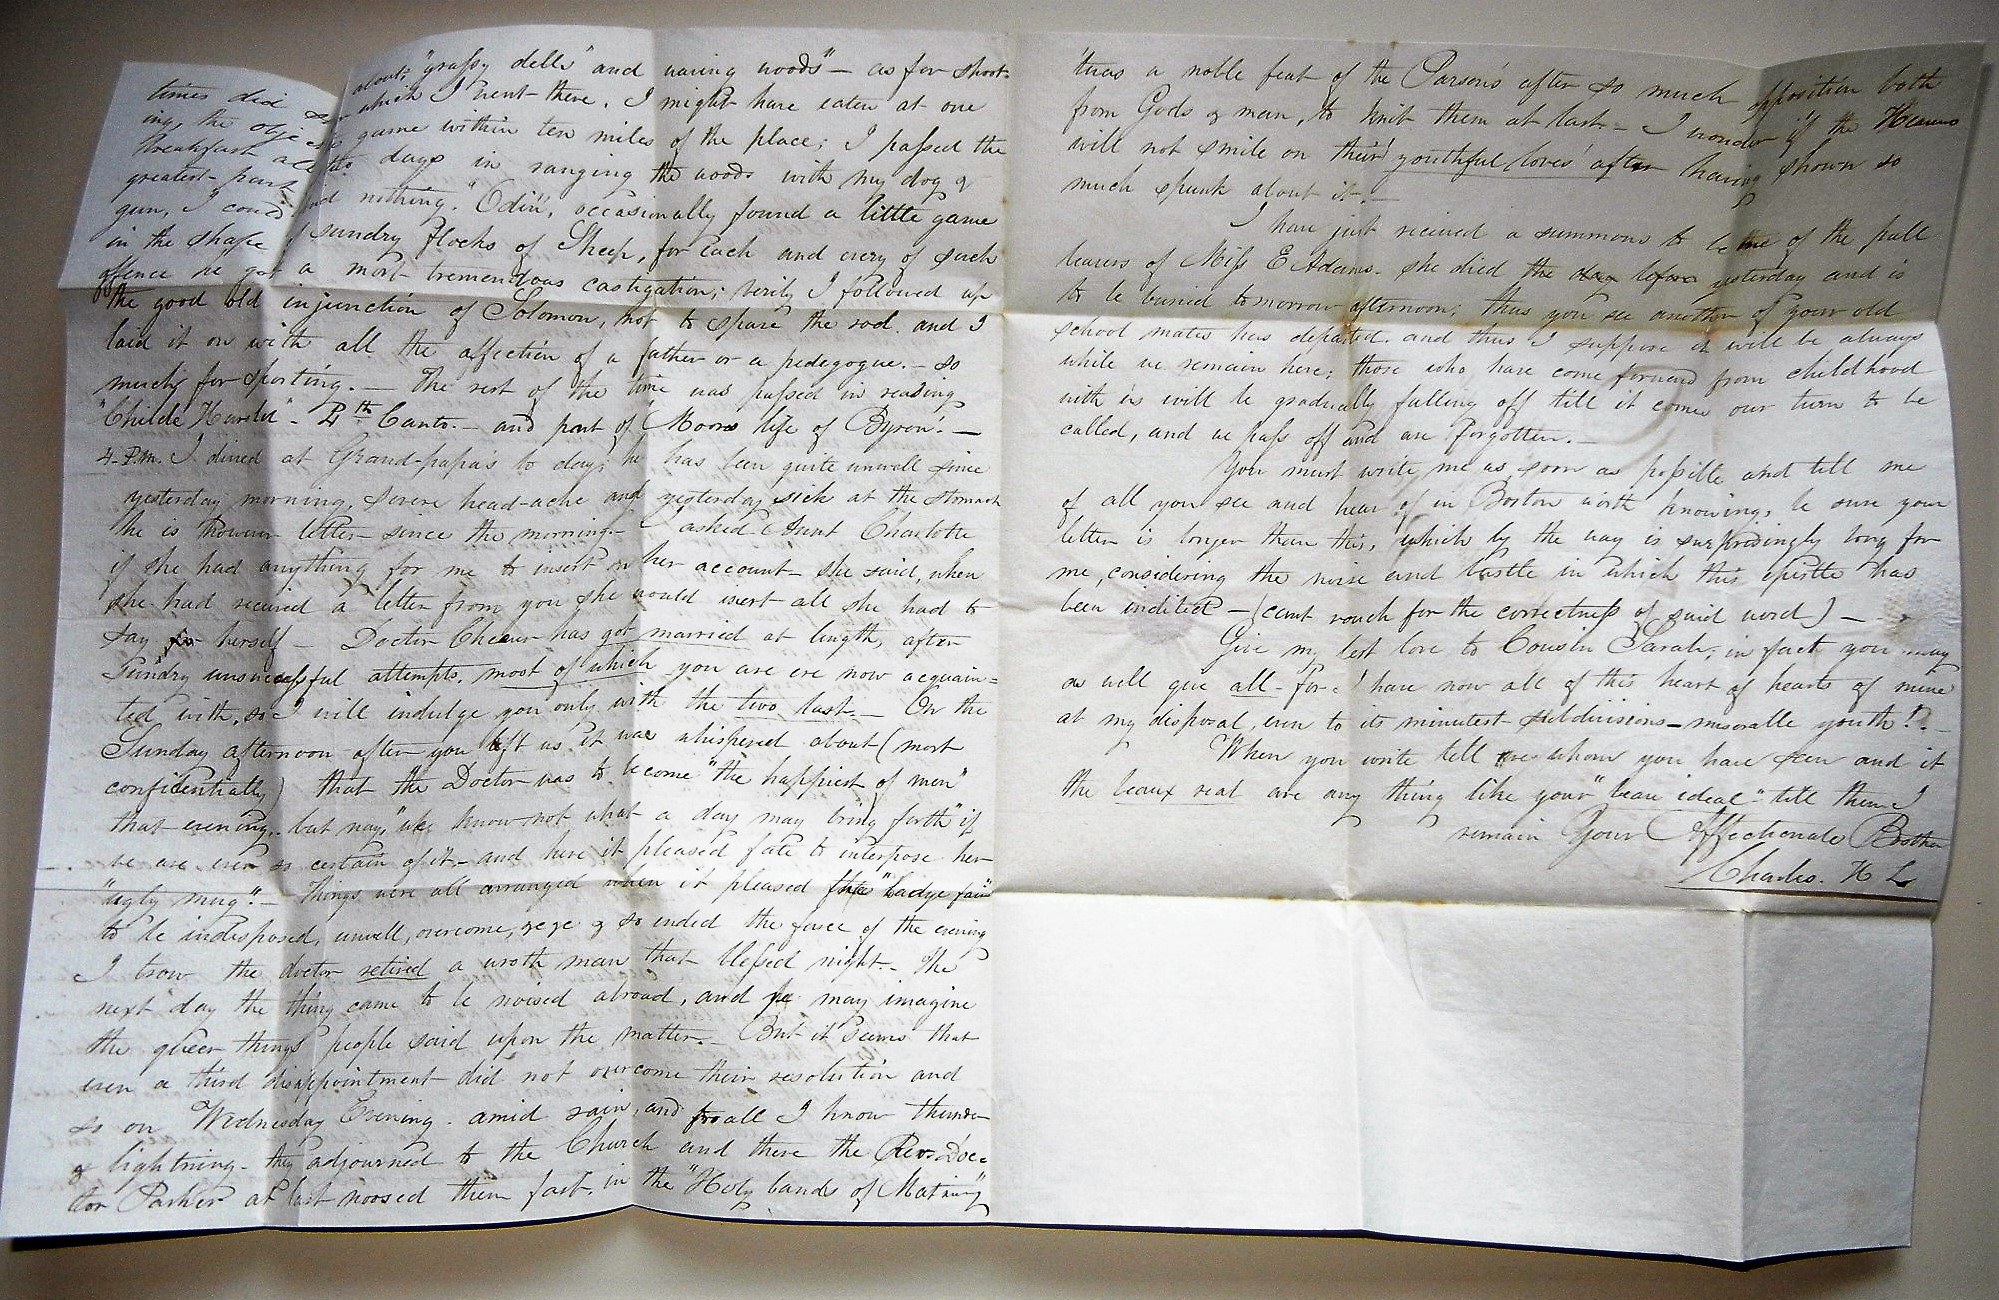 times did about, "grassy dells" and waving woods" — as for shoot-
ing, the obje which I went there. I might have eaten at one
breakfast all the game within ten miles of the place; I passed the
greatest part days in ranging the woods with my dog &
gun, I could find nothing. "Odin", occasionally found a little game
in the shape of sundry flocks of Sheep, for each and every of such
offence he got a most tremendous castigation; verily I followed up
the good old injunction of Solomon, not to spare the rod. and I
laid it on with all the affection of a father or a pedegogue. — so
much for sporting. — The rest of the time was passed in reading
"Childe Harold" - 4th Canto. — and part of Moore's life of Byron. —
4. P.M. I dined at Grand-papa's to day; he has been quite unwell since
yesterday morning, severe head-ache and yesterday sick at the stomach
he is however better since the morning — I asked Aunt Charlotte
if she had anything for me to insert on her account — she said, when
she had recieved a letter from you she would insert all she had to
say for herself — Doctor Cheever has got married at length, after
Sundry unsuccessful attempts, most of which you are ere now acquain=
ted with, so I will indulge you only with the two last. — On the
Sunday afternoon after you left us it was whispered about (most
confidentially) that the Doctor was to become "the happiest of men"
that evening. but nay, "we know not what a day may bring forth" if
we are ever so certain of it — and here it pleased fate to interpose her
"ugly mug." — Things were all arranged when it pleased the "Ladye fair"
to be indisposed, unwell, overcome, & so ended the farce of the evening
I trow the doctor retired a wroth man that blessed night. — The
next day the thing came to be noised abroad, and ye may imagine
the queer things people said upon the matter. — But it seems that
even a third disappointment did not overcome their resolution and
so on Wednesday Evening. amid rain, and for all I know thunder
& lightning — they adjourned to the Church and there the Rev. Doc=
tor Parker at last noosed them fast, in the "Holy bands of Matrimy"
'twas a noble feat of the Parsons after so much opposition both
from Gods & man, to knit them at last. — I wonder if the Heavens
will not smile on their 'youthful loves' after having shown so
much spunk about it. —
I have just recieved a summons to be one of the pall
bearers of Miss E Adams. she died the day before yesterday and is
to be buried tomorrow afternoon; thus you see another of your old
school mates has departed. and thus I suppose it will be always
while we remain here; those who have come forward from childhood
with us will be gradually falling off till it comes our turn to be
called, and we pass off and are forgotten. —
You must write me as soon as possible and tell me
of all you see and hear of in Boston worth knowing, be sure your
letter is longer than this, which by the way is surprisingly long for
me, considering the noise and bustle in which this epistle has
been indited — (cant vouch for the correctness of said word) —
Give my best love to Cousin Sarah, in fact you may
as well give all - for I have now all of this heart of hearts of mine
at my disposal, even to its minutest subdivisions — miserable youth! —
When you write tell me whom you have seen and if
the beaux real are any thing like your "beau ideal" — till then I
remain Your Affectionate Brother
Charles. H L